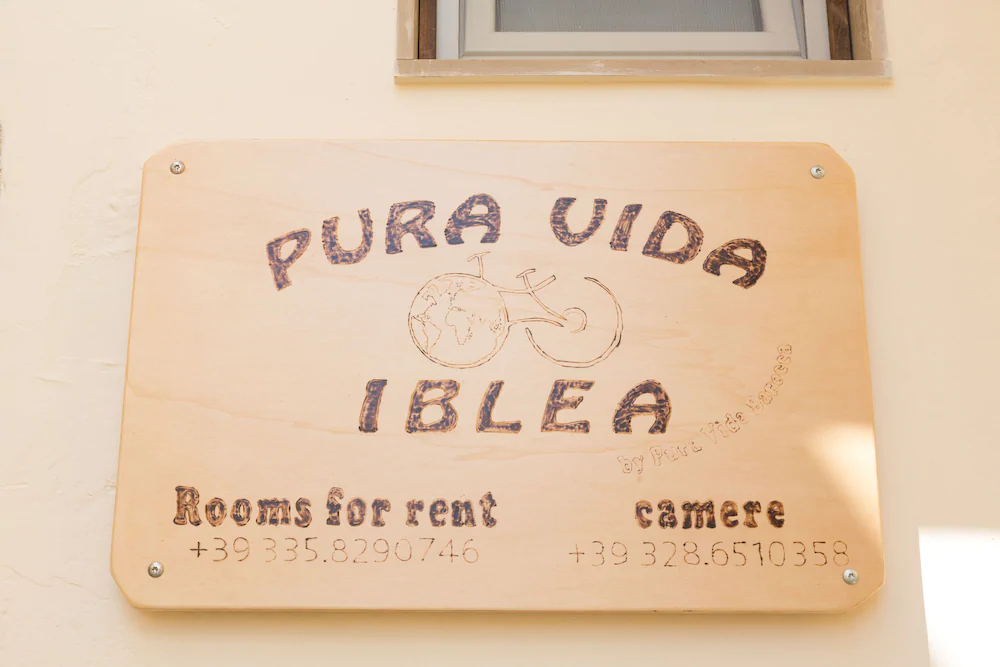 PURA VIDA
IBLEA
by Pura Vida Barocca
Rooms for rent
camere
+39 335.8290746
+39 328.6510358